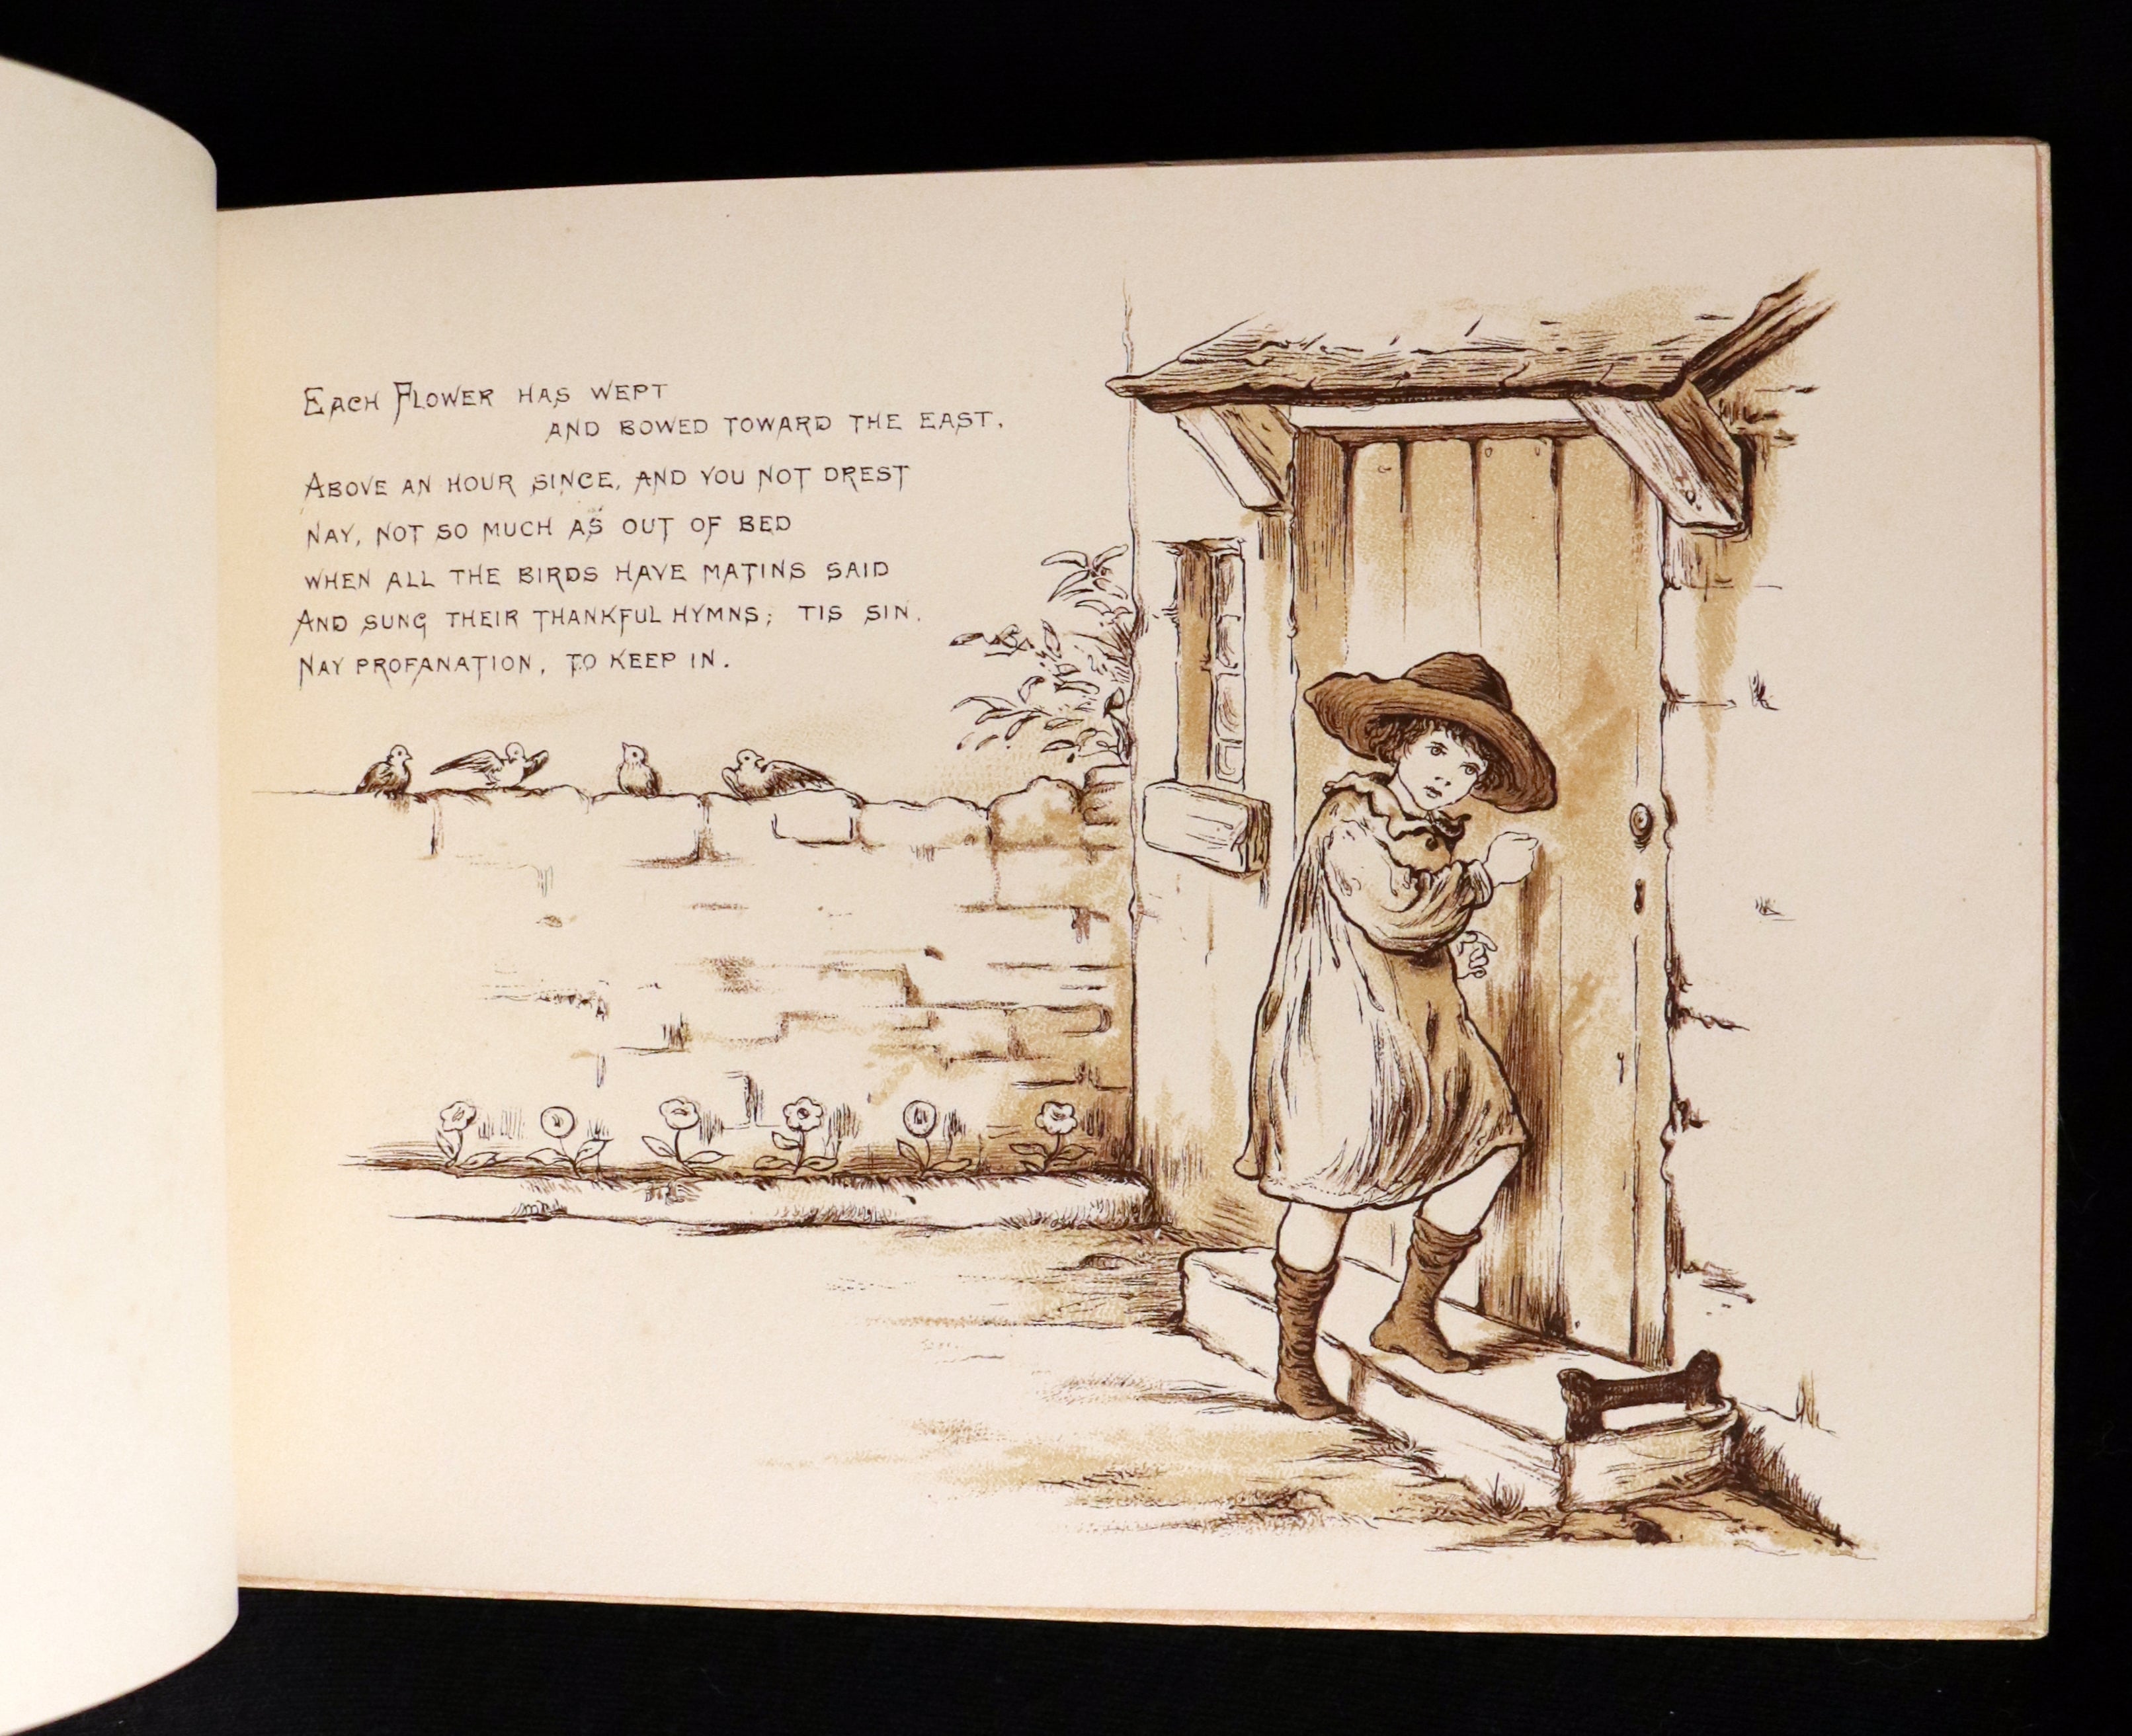 EACH FLOWER HAS WEPT
AND BOWED TOWARD THE EAST,
ABOVE AN HOUR SINCE, AND YOU NOT DREST
NAY, NOT SO MUCH AS OUT OF BED
WHEN ALL THE BIRDS HAVE MATINS SAID
AND SUNG THEIR THANKFUL HYMNS; TIS SIN,
NAY PROFANATION, TO KEEP IN.